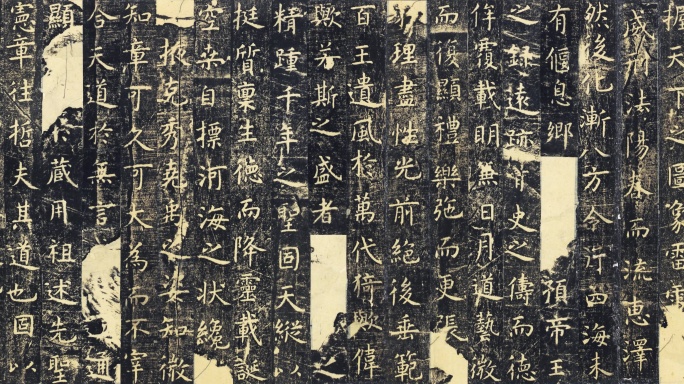 握天下之圖象雷電
威刑法陽春而流惠澤
然後化漸八方令行四海未
有偃息鄉預帝王
之錄遠跡胥史之儔而德
侔覆載明兼日月道藝微
而復顯禮樂弛而更張
理盡性光前絕後垂範
百王遺風於萬代猗歟偉
歟若斯之盛者
精踵千年之聖固天縱以
挺質稟生德而降靈載誕
空桑自標河海之狀纔
掖克秀堯禹之姿知微
知章可久可大為而不宰
合天道於無言通
顯藏用祖述先聖
憲章往哲夫其道也固以